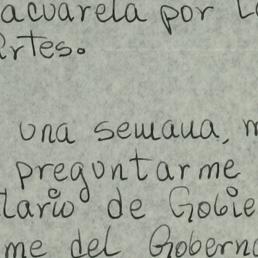 acuarela por L
Artes.
una semana, m
preguntarme
tario de Gobie
me del Goberna